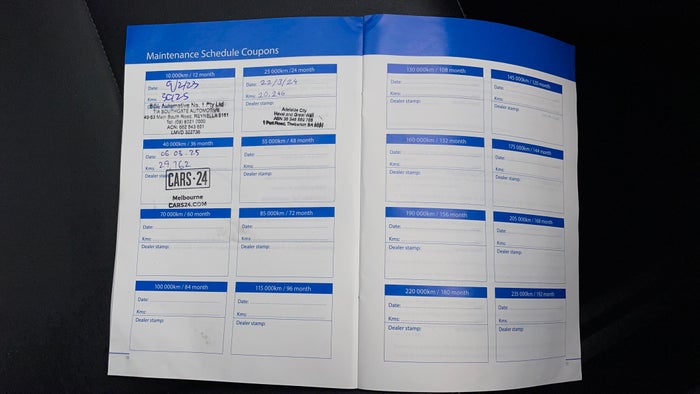 Maintenance Schedule Coupons
10 000km / 12 month
Date: 9/2/23
Kms:
BGL Automotive No. 1 Pty Ltd
T/A SOUTHGATE AUTOMOTIVE
Main South Road, REYNELLA 5161
25 000km /24 month
Date: 22/3/24
Kms: 20,246
Dealer stamp:
Adelaide City
Haval and Great Wall
40 000km / 36 month
Date: 06 03 25
Kms: 29 762
Dealer
CARS·24
Melbourne
CARS24.COM
55 000km / 48 month
Date:
Kms:
Dealer stamp:
70 000km / 60 month
Date:
Kms:
Dealer stamp:
85 000km / 72 month
Date:
Kms:
Dealer stamp:
100 000km / 84 month
Date:
Kms:
Dealer stamp:
115 000km / 96 month
Date:
Kms:
Dealer stamp:
130 000km / 108 month
Date:
Kms:
Dealer stamp:
145 000km / 120 month
Date:
Kms:
Dealer stamp:
160 000km / 132 month
Date:
Kms:
Dealer stamp:
175 000km / 144 month
Date:
Kms:
Dealer stamp:
190 000km / 156 month
Date:
Kms:
Dealer stamp:
205 000km / 168 month
Date:
Kms:
Dealer stamp:
220 000km / 180 month
Date:
Kms:
Dealer stamp:
235 000km / 192 month
Date:
Kms:
Dealer stamp: